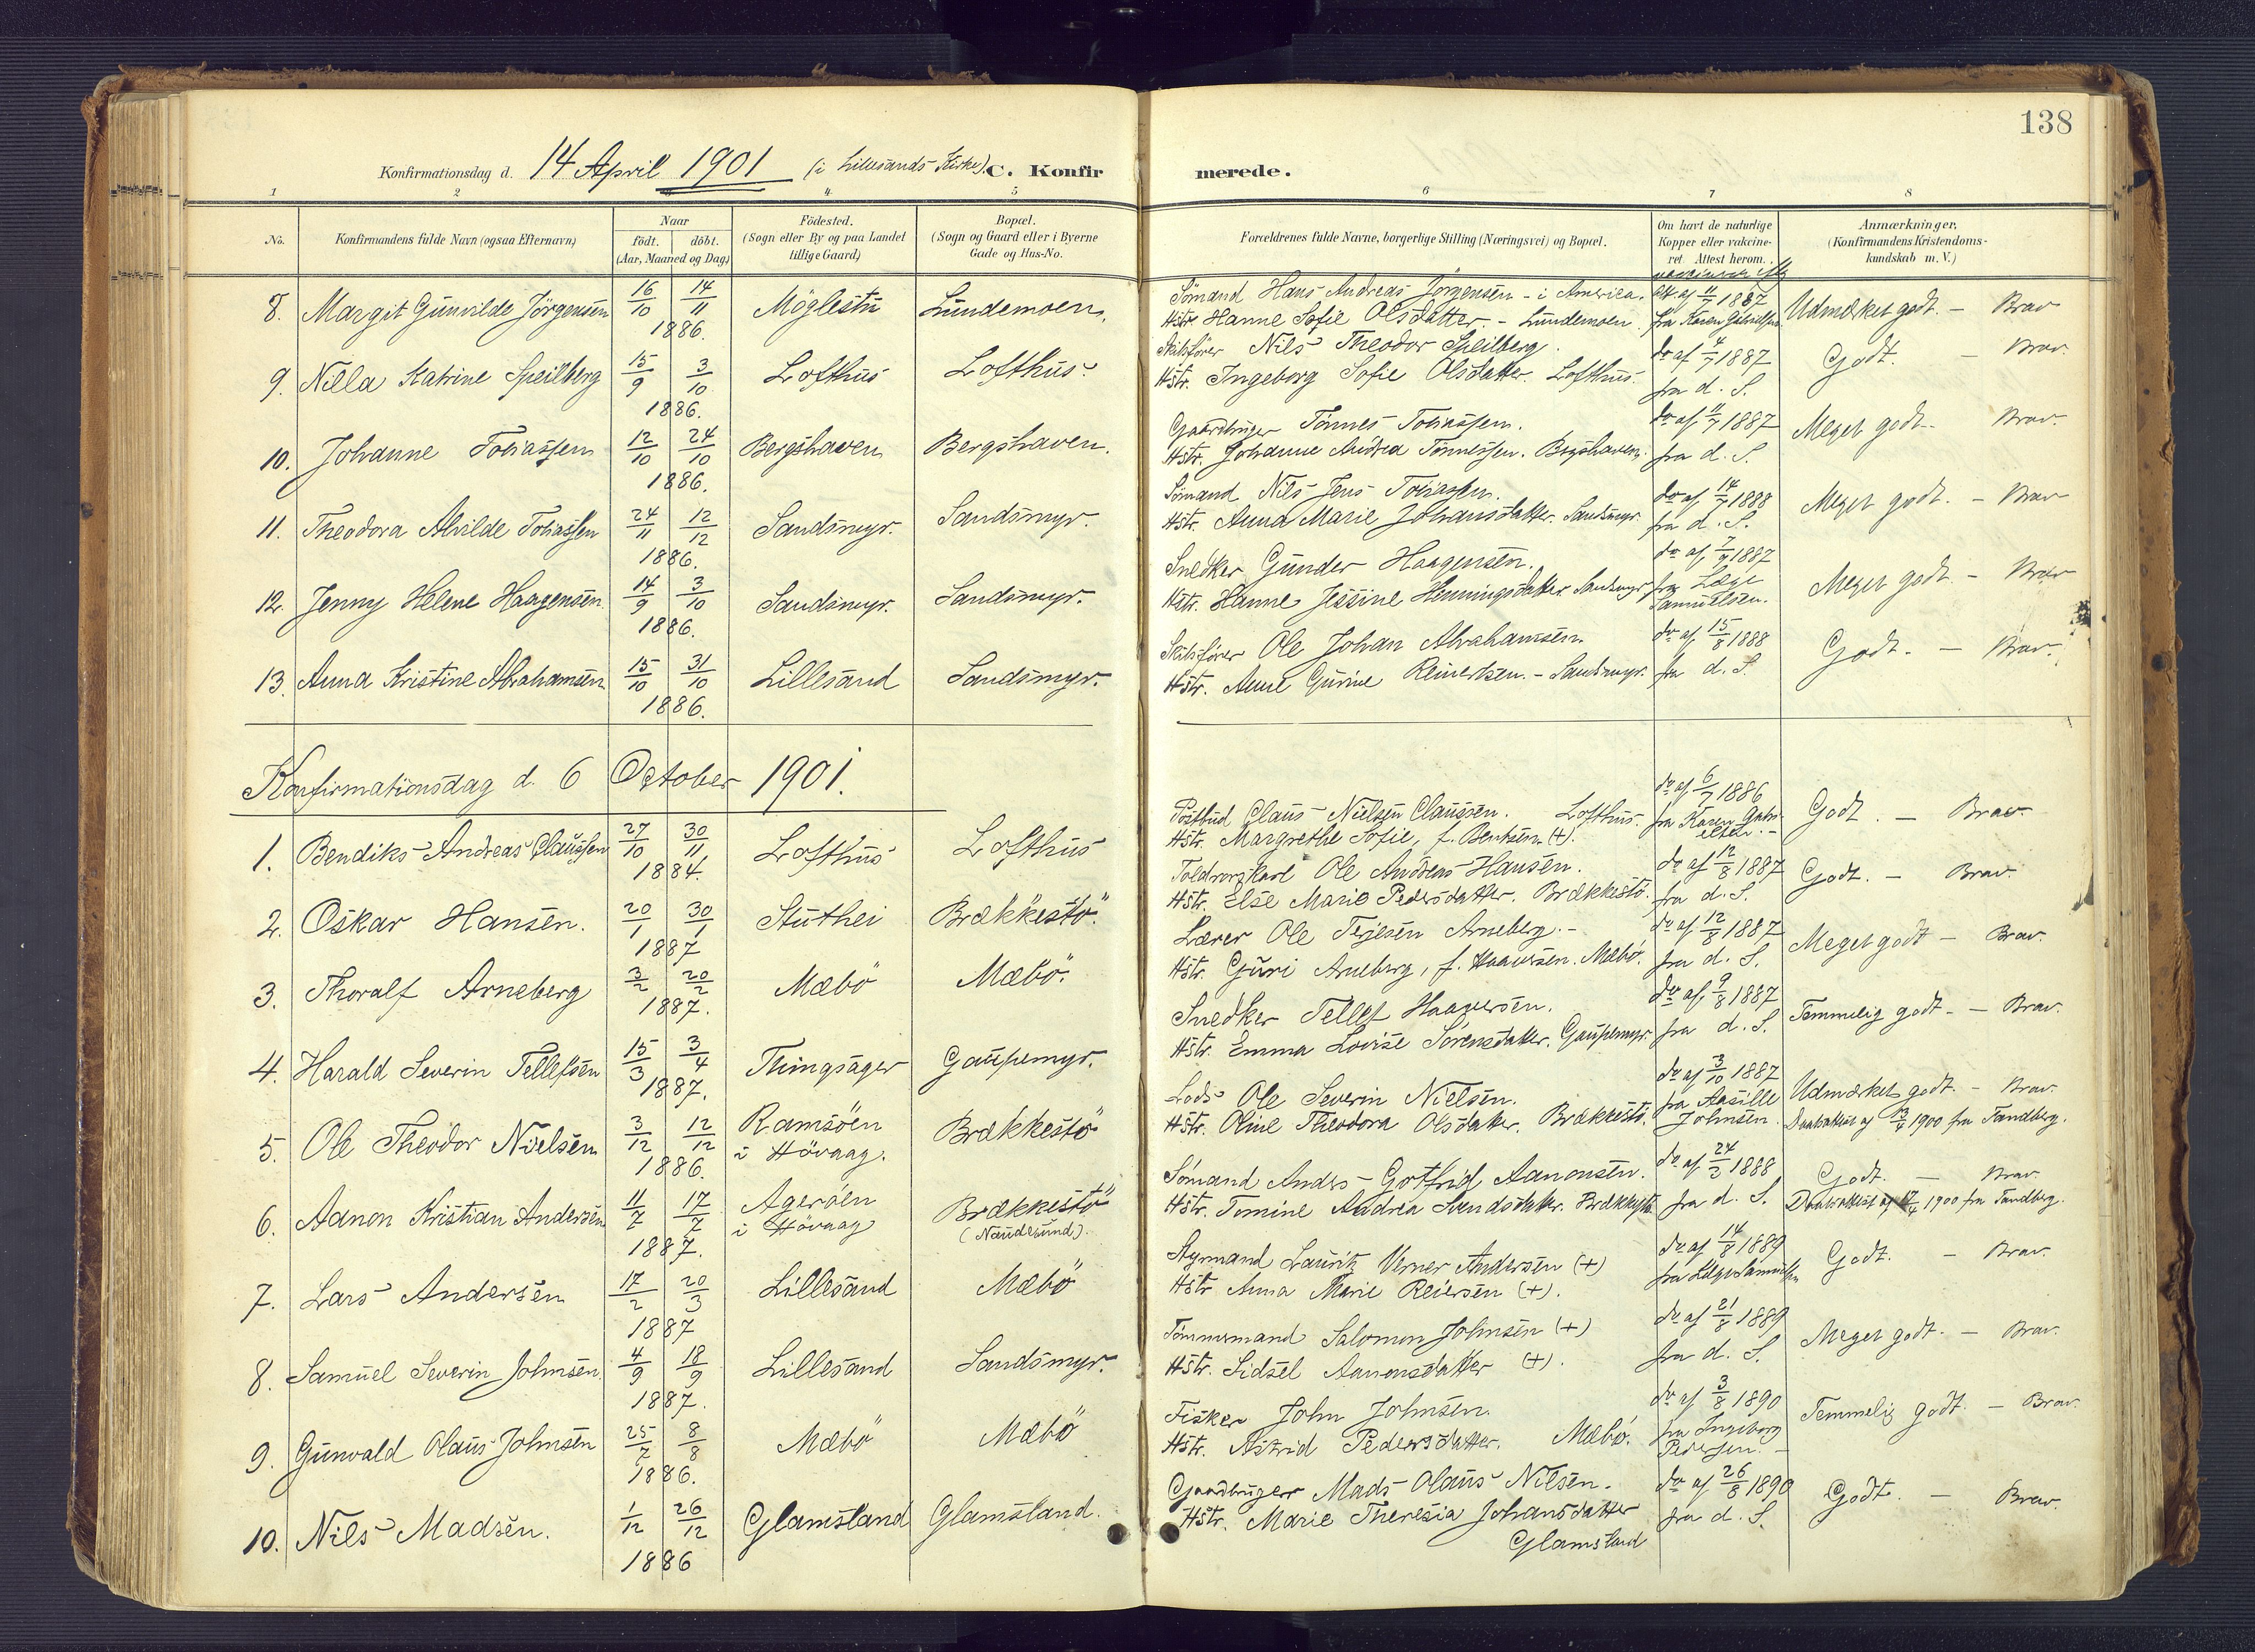 138
Konfirmationsdag d. 14 April 1901 (i Lillesands Kirke). C. Konfirmerede.
1 2 3 4 5 6 7 8
No.
Konfirmandens fulde Navn (ogsaa Efternavn)
Naar
födt. döbt.
(Aar, Maaned og Dag)
Födested.
(Sogn eller By og paa Landet
tillige Gaard)
Bopæl.
(Sogn og Gaard eller i Byerne
Gade og Hus-No.
Forældrenes fulde Navne, borgerlige Stilling (Næringsvei) og Bopæl.
Om havt de naturlige
Kopper eller vakcine-
ret. Attest herom.
Anmærkninger.
(Konfirmandens Kristendoms-
kundskab m. V.)
8. Margit Gunvilde Jörgensen 16/10 14/11 1886. Möglestu Lundemoen.
Sömand Hans Andreas Jörgensen - i America.
Hstr. Hanne Sofie Olsdatter. - Lundemoen.
Att. af 11/7 1887
fra Karen Gabrielsen
Udmærket godt. - Brav
9. Nilla Katrine Speilberg 15/9 3/10 1886. Lofthus Lofthus.
Skibsförer Nils Theodor Speilberg.
Hstr. Ingeborg Sofie Olsdatter. Lofthus.
do af 4/7 1887
fra d. S.
Godt. - Brav.
10. Johanne Tobiassen 12/10 24/10 1886. Bergshaven Bergshaven.
Gaardbruger Tönnes Tobiassen.
Hstr. Johanne Andrea Tönnessen. Bergshaven.
do af 11/7 1887
fra d. S.
Meget godt. Brav.
11. Theodora Alvilde Tobiassen 24/11 12/12 1886. Sandsmyr. Sandsmyr.
Sömand Nils Jens Tobiassen.
Hstr. Anna Marie Johansdatter. Sandsmyr.
do af 14/7 1888
fra d. S.
Meget godt. - Brav
12. Jenny Helene Haagensen. 14/9 3/10 1886. Sandsmyr. Sandsmyr.
Snedker Gunder Haagensen.
Hstr. Hanne Jessine Henningsdatter. Sandsmyr.
do af 7/9 1887
fra Læge
Samuelsen.
Meget godt. - Brav
13. Anna Kristine Abrahamsen 15/10 31/10 1886. Lillesand Sandsmyr.
Skibsförer Ole Johan Abrahamsen.
Hstr. Anne Gurine Reinertsen. - Sandsmyr.
do af 15/8 1888
fra d. S.
Godt. - Brav.
Konfirmationsdag d. 6 October 1901.
1. Bendiks Andreas Claussen 27/10 30/11 1884. Lofthus Lofthus
Postbud Claus Nielsen Claussen. Lofthus.
Hstr. Margrethe Sofie, f. Bentsen (+).
do af 6/7 1886
fra Karen Gabri-
elsen. -
Godt. - Brav.
2. Oskar Hansen. 20/1 30/1 1887 Stuthei Brækkestö.
Toldrorskarl Ole Andreas Hansen.
Hstr. Else Marie Pedersdatter. Brækkestö.
do af 12/8 1887
fra d. S.
Godt. - Brav.
3. Thoralf Arneberg 3/2 20/2 1887. Mæbö Mæbö.
Lærer Ole Terjesen Arneberg. -
Hstr. Guri Arneberg, f. Haaversen. Mæbö.
do af 12/8 1887
fra d. S.
Meget godt - Brav.
4. Harald Severin Tellefsen 15/3 3/4 1887. Thingsager Gaupemyr.
Snedker Tellef Haaversen.
Hstr. Emma Lovise Sörensdatter. Gaupemyr.
do af 9/8 1887
fra d. S.
Temmelig godt. - Brav.
5. Ole Theodor Nielsen 3/12 12/12 1886. Ramsöen
i Hövaag. Brækkestö
Lods Ole Severin Nielsen.
Hstr. Oline Theodora Olsdatter. Brækkestö.
do af 3/10 1887
fra Aasille
Johnsen.
Udmærket godt. - Brav.
Daabsattest af 13/4 1900 fra Tandberg.
6. Aanon Kristian Andersen 11/7 17/7 1887. Ageröen
i Hövaag Brækkestö
(Naudesund).
Sömand Anders Gotfrid Aanonsen.
Hstr. Tomine Andrea Svendsdatter. Brækkestö
do af 24/2 1888
fra d. S.
Godt. - Brav.
Daabsattest af 17/4 1900 fra Tandberg.
7. Lars Andersen 17/2 20/3 1887 Lillesand Mæbö
Styrmand Lauritz Verner Andersen (+)
Hstr. Anna Marie Reiersen (+).
do af 14/8 1889
fra Læge Samuelsen
Godt. - Brav.
8. Samuel Severin Johnsen. 4/9 18/9 1887. Lillesand Sandsmyr.
Tömmermand Salomon Johnsen (+)
Hstr. Sidsel Aanonsdatter (+).
do af 21/8 1889
fra d. S.
Meget godt. - Brav.
9. Gunvald Olaus Johnsen 25/7 8/8 1886. Mæbö Mæbö
Fisker John Johnsen.
Hstr. Astrid Pedersdatter. Mæbö.
do af 3/8 1890
fra Ingeborg
Pedersen. -
Temmelig godt. - Brav.
10. Nils Madsen. 1/12 26/12 1886 Glamsland Glamsland.
Gaardbruger Mads Olaus Nilsen.
Hstr. Marie Theresia Johansdatter
Glamsland
do af 26/8 1890
fra d. S.
Godt. - Brav.